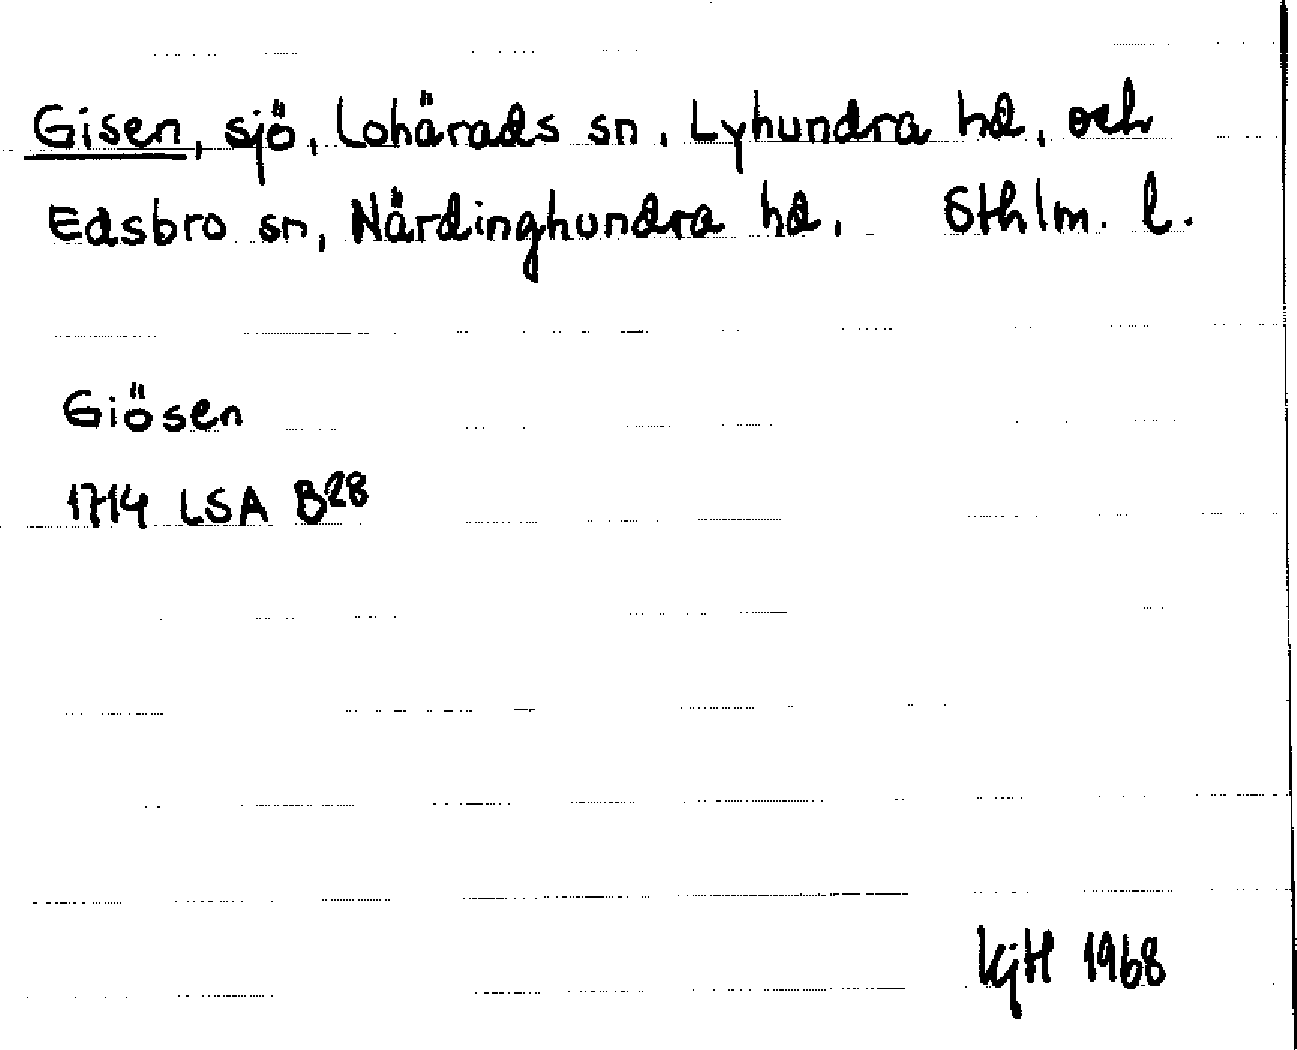 Gisen, sjö, Lohärads sn, Lyhundra hd, och
Edsbro sn, Närdinghundra hd. Sthlm. l.
Giösen
1714 LSA B28
KjH 1968